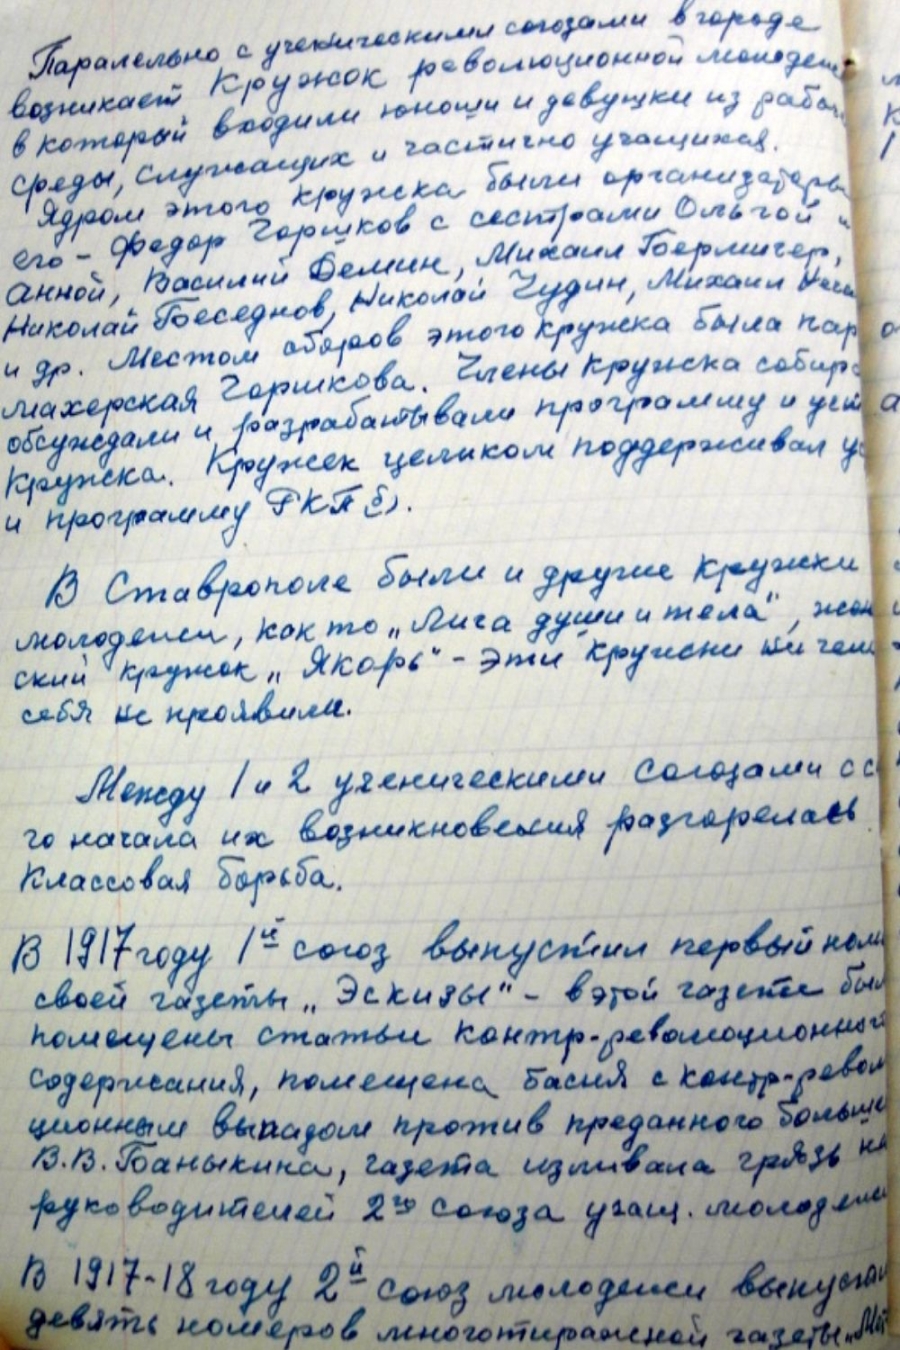 Паралельно с ученическими союзами в городе
возникает Кружок революционной молодеж
в который входили юноши и девушки из рабоч
среды, служащих и частично учащихся.
Ядром этого кружка были организаторы
его - Федор Горшков с сестрами Ольгой и
Анной, Василий Демин, Михаил Бермичер,
Николай Беседнов, Николай Чудин, Михаил
и др. Местом сборов этого кружка была пар
махерская Горшкова. Члены кружка собира
обсуждали и разрабатывали программу и уст
Кружка. Кружек целиком поддерживал ус
и программу РКП(б).
В Ставрополе были и другие кружки
молодежи, как то „Лига души и тела", жен
ский кружок „Якорь" - эти кружки ни чем
себя не проявили.
Между 1 и 2 ученическими союзами с са
го начала их возникновения разгорелась
Классовая борьба.
В 1917 году 1й союз выпустил первый номе
своей газеты „Эскизы" - в этой газете был
помещены статьи контр-революционного
содержания, помещена басня с контр-револю
ционным выпадом против преданного больше
В.В. Баныкина, газета изливала грязь на
руководителей 2го союза учащ. молодежи
В 1917-18 году 2й союз молодежи выпускал
девять номеров многотиражной газеты